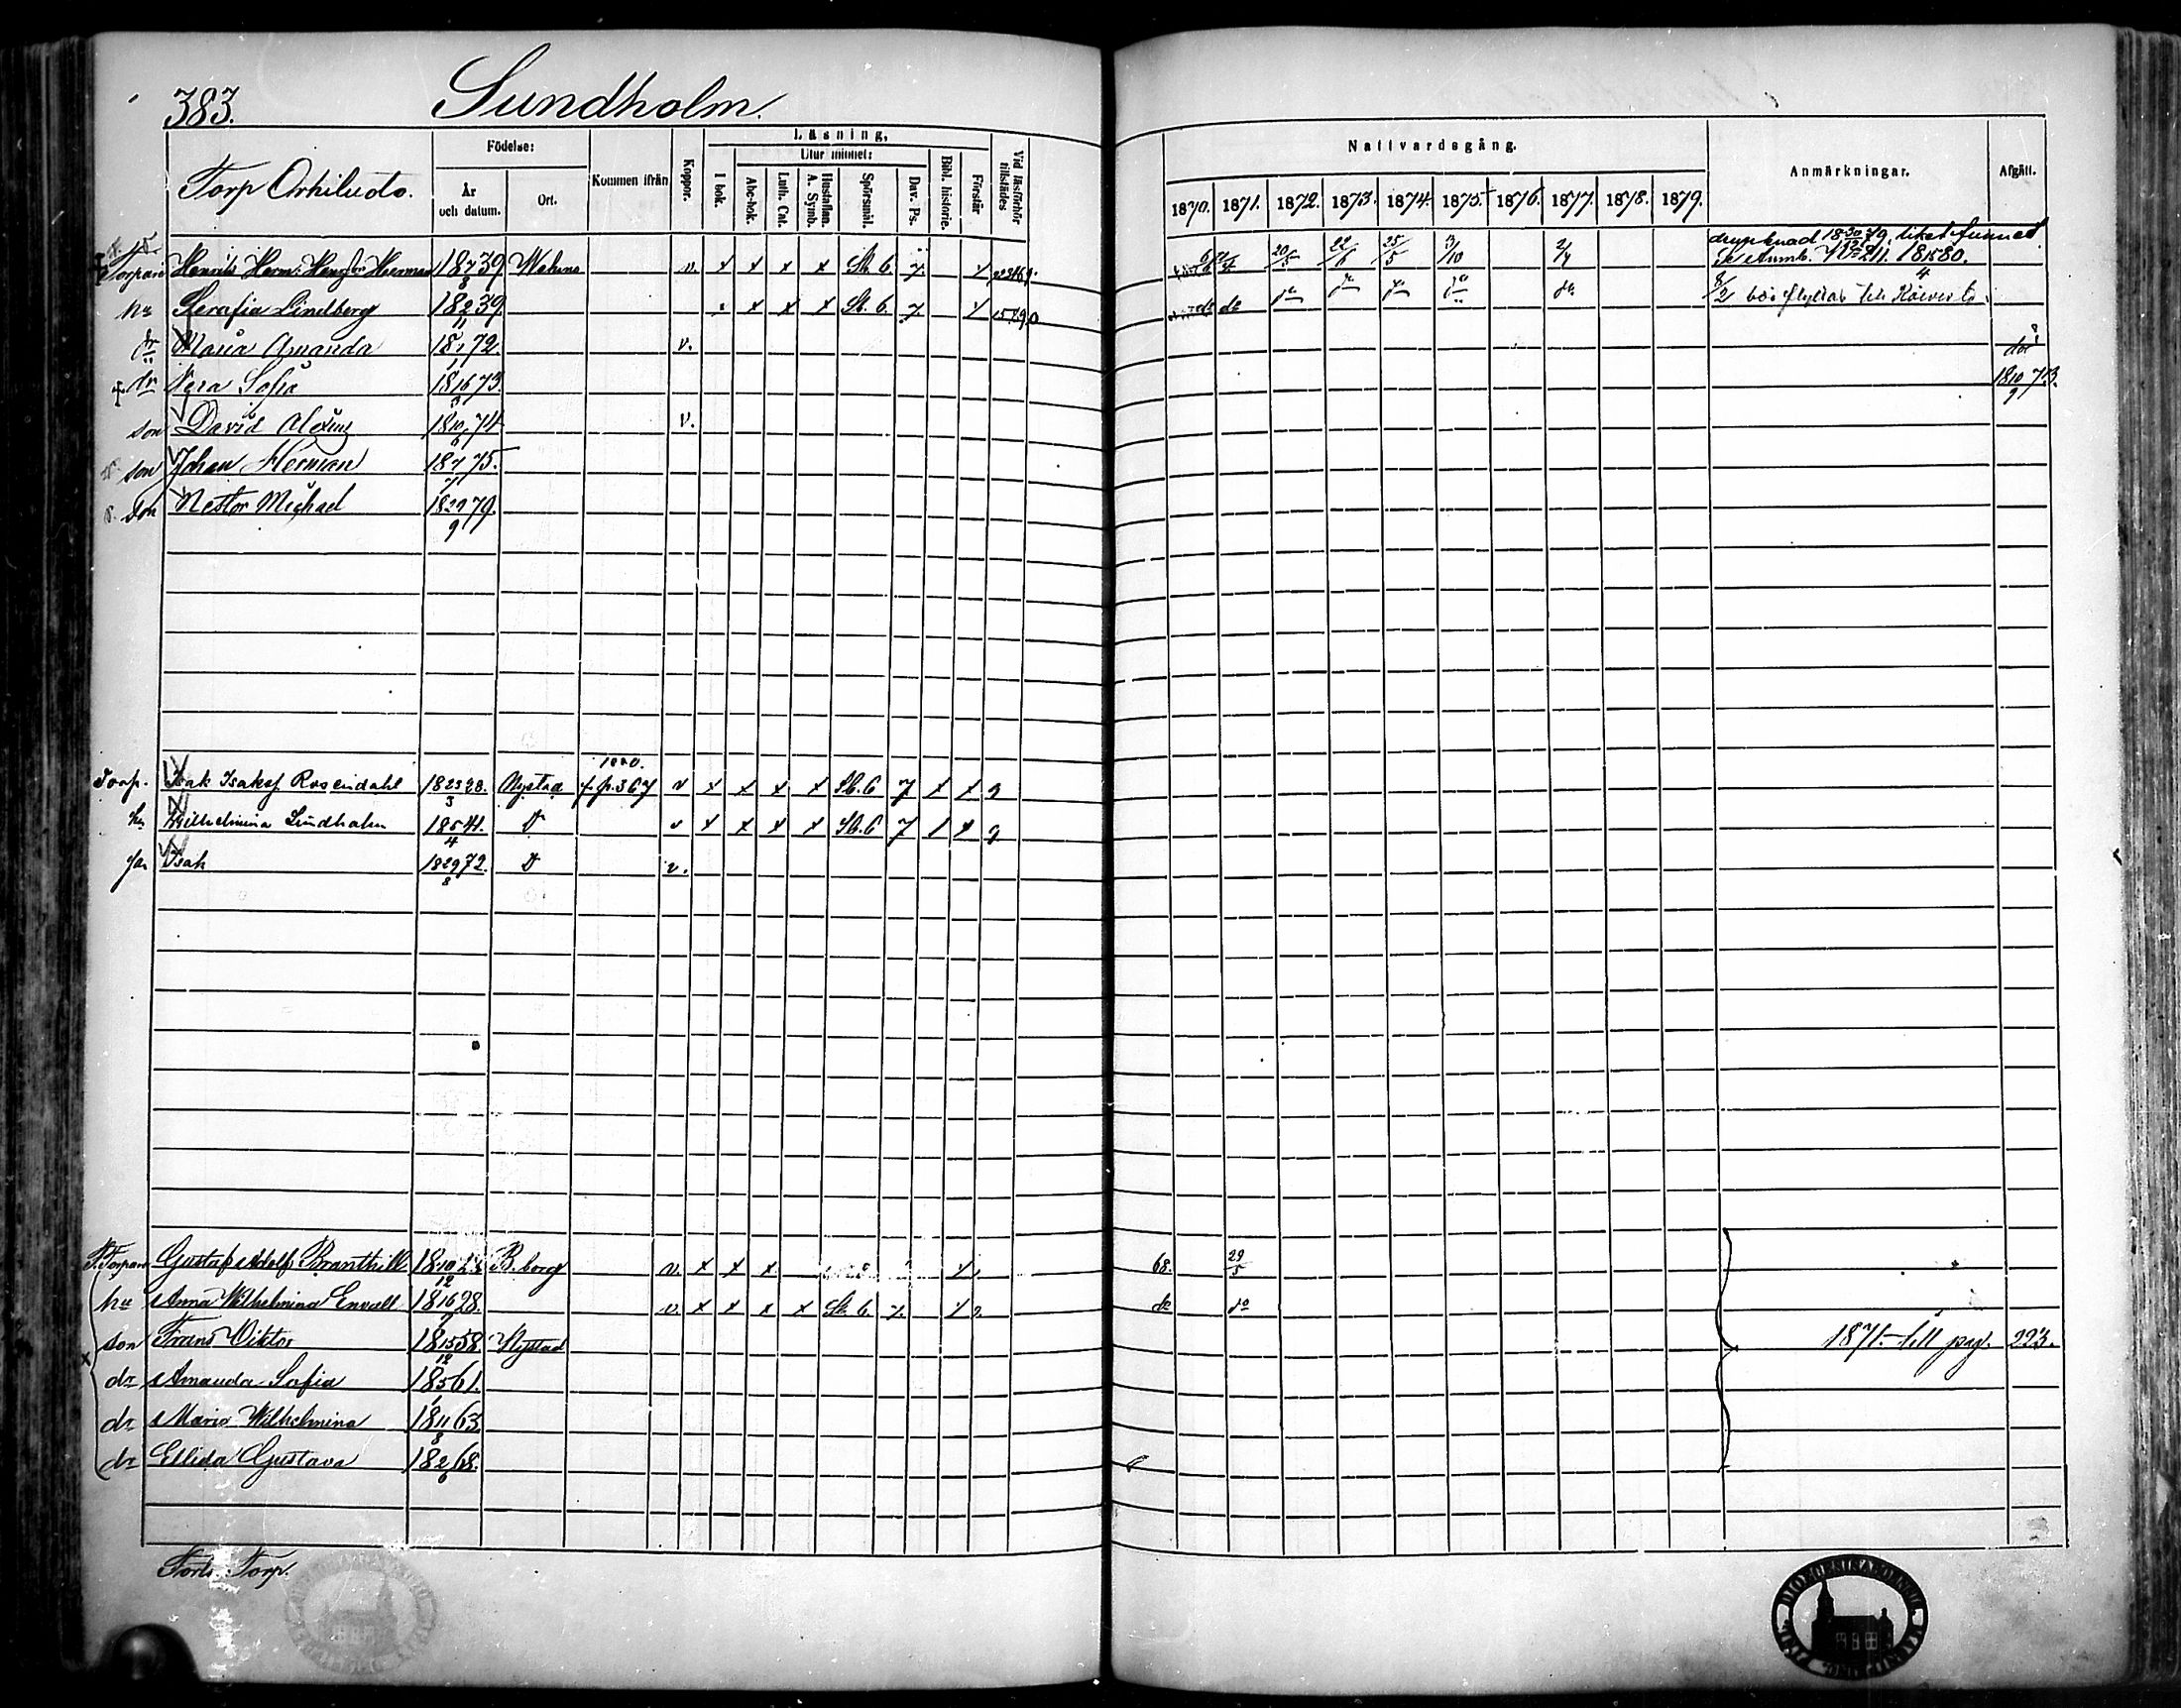 383. Sundholm.
Torp Orhiluoto.
Födelse:
År och datum.
Ort.
Kommen ifrån
Koppor.
Läsning,
I bok.
Utur minnet:
Abc-bok.
Luth. Cat.
Hustaflan. A. Symb.
Spörsmål.
Dav. Ps.
Bibl. historie.
Förstår
Vid läsförhör tillstädes
Nattvardsgång.
1870. 1871. 1872. 1873. 1874. 1875. 1876. 1877. 1878. 1879.
Anmärkningar.
Afgått.
Torpare Henrik Herm. Herman 18 7/8 39 v. x x x x St. 6. 7. 20/5 22/6 25/5 3/10 2/4 drunknad liket funnet
18 15/4 80.
hu Serafia Lindberg 18 2/11 39. x x x St. 6. 7. do do 8/2 till
dr Maria Amanda 18 1/11 72. v.
dr Vera Sofia 18 16/3 73. död 18 10/9 73.
son David Alexius 18 10/6 74 v.
son Johan Herman 18 7/7 75.
son Nestor Michael 18 29/9 79.
Torp. Isak Isaksf Rosendahl 18 23/3 28. Nystad f. p. 367 v x x x x St. 6 7 x x 9
hu Wilhelmina Lindholm 18 5/4 41. D v x x x x St. 6 7 1 x 9
Isak 18 29/8 72. D v.
F. Torpare Gustaf Adolf Branthill B.borg v. x x x 68. 29/5
hu Anna Wilhelmina Envall 18 16/7 28. v. x x x x St. 6. 7. do do
son Frans Viktor 18 15/12 58. Nystad 1871. till pag. 223.
dr Amanda Sofia 18 5 61.
dr Maria Wilhelmina 18 11/8 63.
dr Ellida Gustava 18 2/6 68.
Forts. Torp.